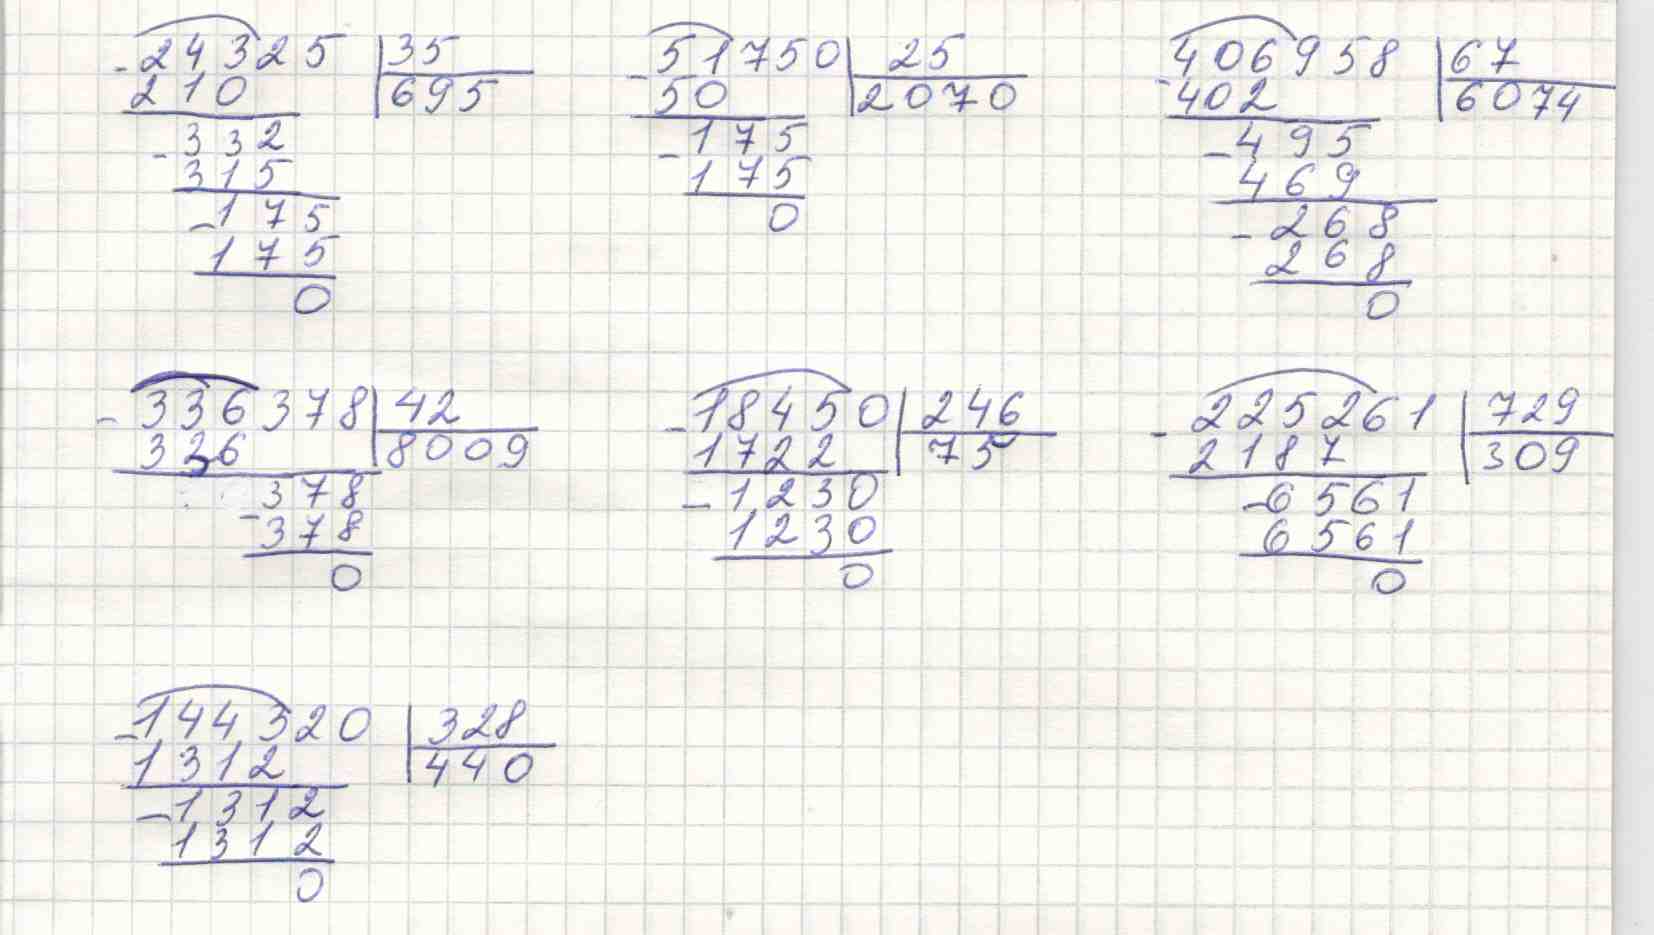 24325 35
210 695
332
315
175
175
0
51750 25
50 2070
175
175
0
406958 67
402 6074
495
469
268
268
0
336378 42
336 8009
378
378
0
18450 246
1722 75
1230
1230
0
225261 729
2187 309
6561
6561
0
144320 328
1312 440
1312
1312
0